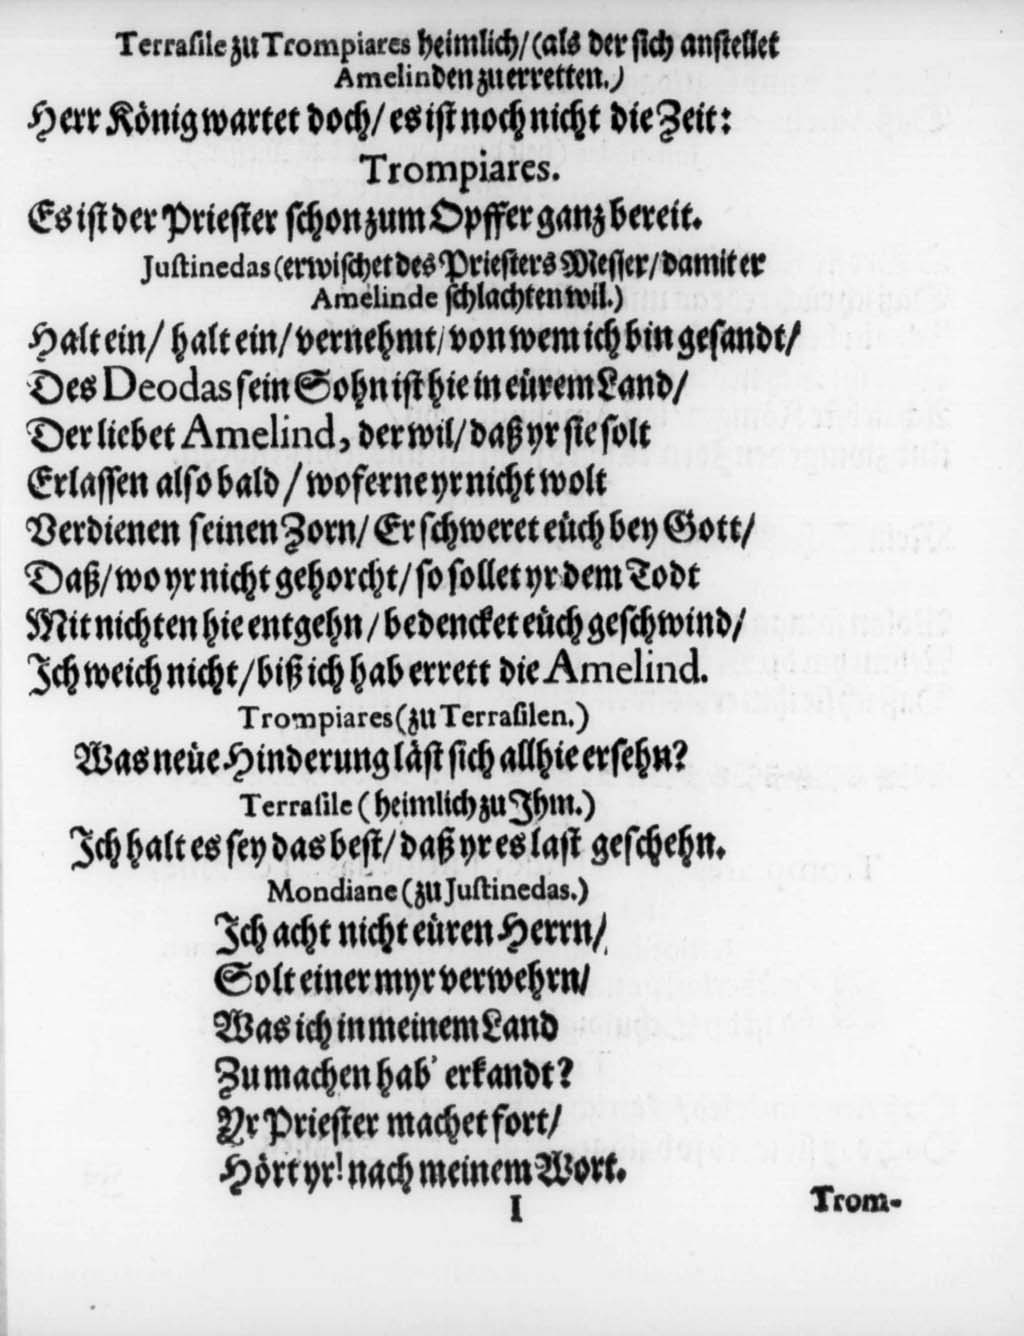 Terrasile zu Trompiares heimlich/(als der sich anstellet
Amelinden zu erretten.)
Herr König wartet doch/ es ist noch nicht die Zeit:
Trompiares.
Es ist der Priester schon zum Opffer ganz bereit.
Justinedas (erwischet des Priesters Messer/ damit er
Amelinde schlachten wil.)
Halt ein/ halt ein/ vernehmt/ von wem ich bin gesandt/
Des Deodas sein Sohn ist hie in eürem Land/
Der liebet Amelind, der wil/ daß yr sie solt
Erlassen also bald/ woferne yr nicht wolt
Verdienen seinen Zorn/ Er schweret eüch bey Gott/
Daß/ wo yr nicht gehorcht/ so sollet yr dem Todt
Mit nichten hie entgehn/ bedencket eüch geschwind/
Ich weich nicht/ biß ich hab errett die Amelind.
Trompiares (zu Terrasilen.)
Was neüe Hinderung läst sich allhie ersehn?
Terrasile (heimlich zu Ihm.)
Ich halt es sey das best/ daß yr es last geschehn.
Mondiane (zu Justinedas.)
Ich acht nicht eüren Herrn/
Solt einer myr verwehrn/
Was ich in meinem Land
Zu machen hab' erkandt?
Yr Priester machet fort/
Hört yr! nach meinem Wort.
I
Trom-